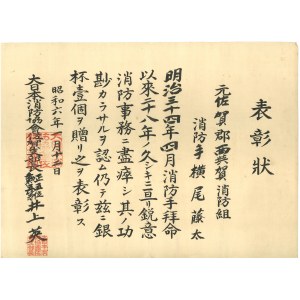 表彰状
元佐賀郡西與賀消防組
消防手 横尾藤太
明治三十四年四月消防手拝命
以来二十八年ノ久シキニ亘リ鋭意
消防事務ニ盡瘁シ其ノ功
尠カラサルヲ認ム仍テ茲ニ銀
杯壹個ヲ贈リ之ヲ表彰ス
昭和六年 月十 日
大日本消防協會佐賀支部長 井上英